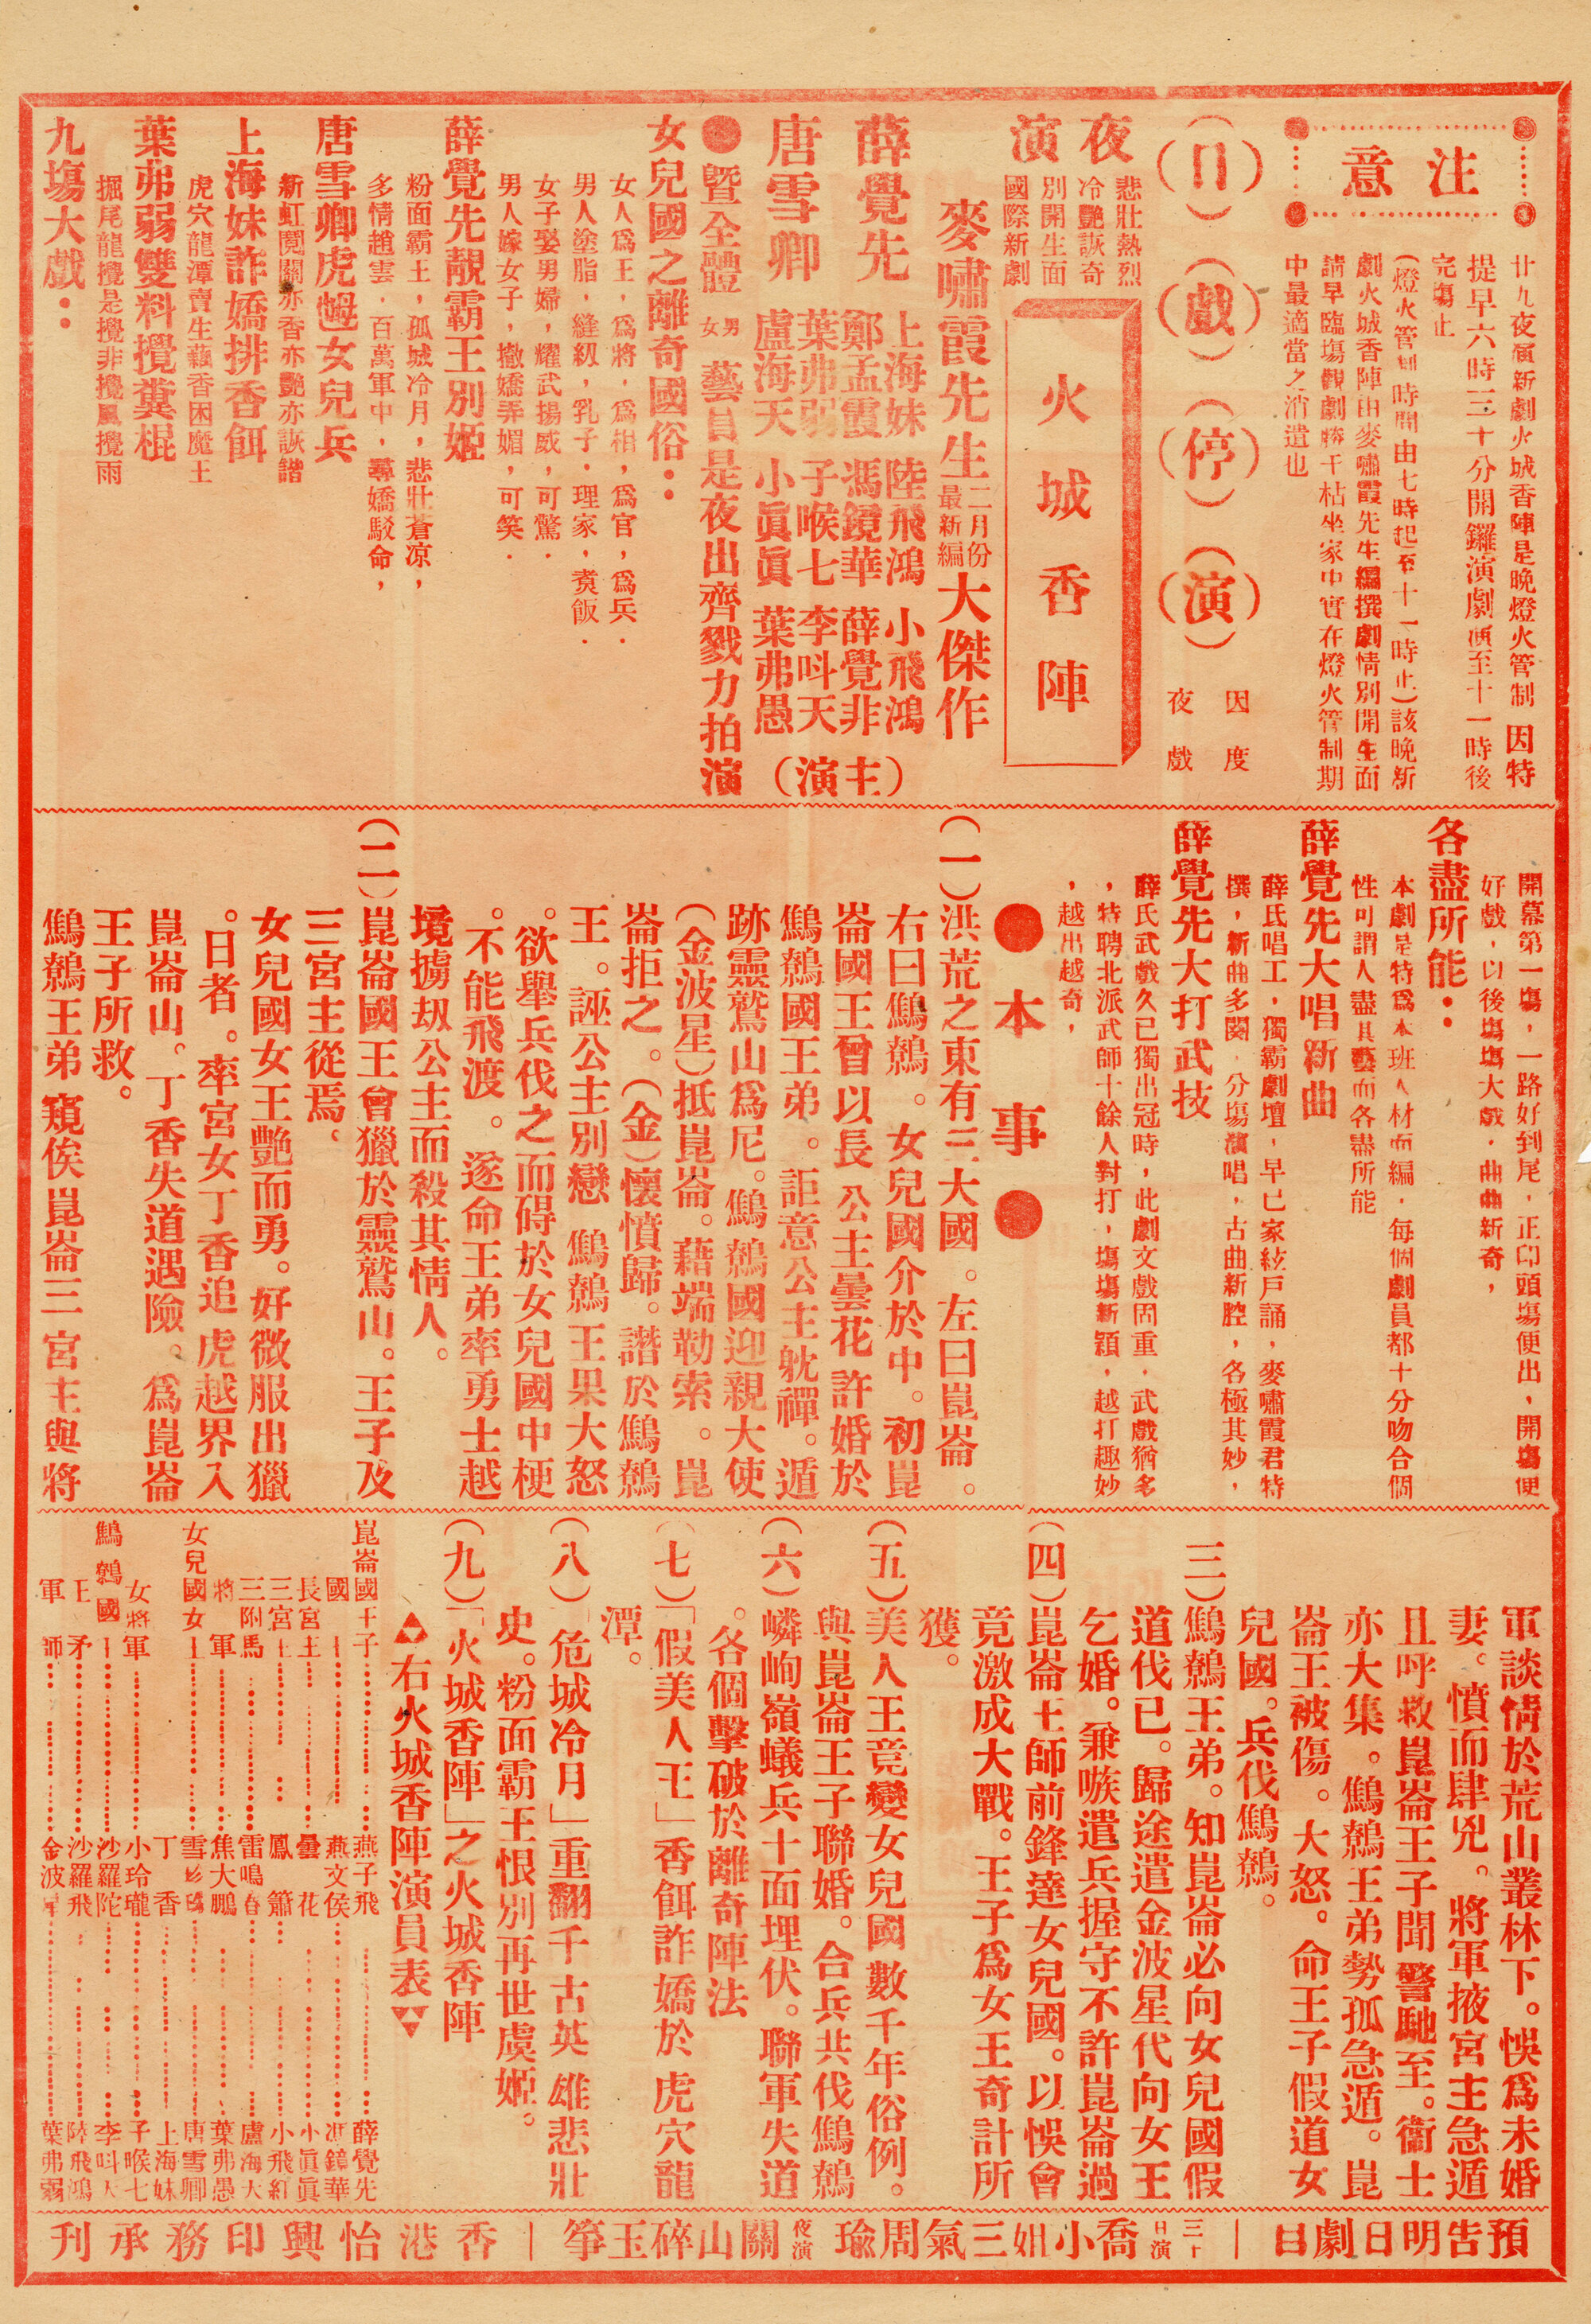 注意
廿九夜演新劇火城香陣是晚燈火管制 因特
提早六時三十分開鑼演劇演至十一時後
完塲止
(燈火管制時間由七時起至十一時止)該晚新
劇火城香陣由麥嘯霞先生編撰劇情別開生面
請早臨塲觀劇勝于枯坐家中實在燈火管制期
中最適當之消遣也
(日)(戲)(停)(演)
因度
夜戲
夜演
悲壯熱烈
冷艷詼奇
別開生面
國際新劇
火城香陣
麥嘯霞先生二月份最新編大傑作
薛覺先
唐雪卿
上海妹 陸飛鴻 小飛鴻
鄭孟霞 馮鏡華 薛覺非
葉弗弱 子喉七 李呌天
盧海天 小眞眞 葉弗愚
(主演)
●曁全體男女藝員是夜出齊戮力拍演
女兒國之離奇國俗：
女人爲王，爲將，爲相，爲官，爲兵．
男人塗脂，縫紉，乳子．理家，煑飯．
女子娶男婦，耀武揚威，可驚．
男人嫁女子，撤嬌弄媚，可笑．
薛覺先靚霸王別姬
粉面霸王，孤城冷月，悲壯蒼凉，
多情趙雲．百萬軍中，尋嬌駁命，
唐雪卿虎乸女兒兵
新虹霓關亦香亦艷亦詼諧
上海妹詐嬌排香餌
虎穴龍潭賣生藕香困魔王
葉弗弱雙料攪糞棍
掘尾龍攪是攪非攪風攪雨
九塲大戲：
開幕第一塲，一路好到尾，正印頭塲便出，開塲便
好戲，以後塲塲大戲．曲曲新奇，
各盡所能：
本劇是特爲本班人材而編．每個劇員都十分吻合個
性可謂人盡其藝而各盡所能
薛覺先大唱新曲
薛氏唱工，獨霸劇壇．早已家絃戶誦，麥嘯霞君特
撰，新曲多闋．分塲演唱，古曲新腔，各極其妙，
薛覺先大打武技
薛氏武戲久已獨出冠時，此劇文戲固重．武戲猶多
，特聘北派武師十餘人對打，塲塲新穎，越打越妙
，越出越奇，
●本事●
(一)洪荒之東有三大國。左曰崑崙。
右曰鷦鷯。女兒國介於中。初崑
崙國王曾以長公主曇花許婚於
鷦鷯國王弟。詎意公主躭禪。遁
跡靈鷲山爲尼。鷦鷯國迎親大使
(金波星)抵崑崙。藉端勒索。崑
崙拒之。(金)懷憤歸。譖於鷦鷯
王。誣公主別戀 鷦鷯王果大怒
。欲舉兵伐之而碍於女兒國中梗
。不能飛渡。遂命王弟率勇士越
境擄刼公主而殺其情人。
(二)崑崙國王曾獵於靈鷲山。王子及
三宮主從焉。
女兒國女王艷而勇。好微服出獵
。日者。率宮女丁香追虎越界入
崑崙山。丁香失道遇險。爲崑崙
王子所救。
鷦鷯王弟 窺俟崑崙三宮主與將
軍談情於荒山叢林下。悞爲未婚
妻。憤而肆兇。將軍掖宮主急遁
且呼救崑崙王子聞警馳至。衞士
亦大集。鷦鷯王弟勢孤急遁。崑
崙王被傷。大怒。命王子假道女
兒國。兵伐鷦鷯。
(三)鷦鷯王弟。知崑崙必向女兒國假
道伐已。歸途遣金波星代向女王
乞婚。兼嗾遣兵握守不許崑崙過
(四)崑崙王師前鋒達女兒國。以悞會
竟激成大戰。王子爲女王奇計所
獲。
(五)美人王竟變女兒國數千年俗例。
與崑崙王子聯婚。合兵共伐鷦鷯
(六)嶙峋嶺蟻兵十面埋伏。聯軍失道
。各個擊破於離奇陣法
(七)「假美人王」香餌詐嬌於虎穴龍
潭。
(八)「危城冷月」重翻千古英雄悲壯
史。粉面霸王恨別再世虞姬。
(九)「火城香陣」之火城香陣
▲右火城香陣演員表▼
崑崙國王子……燕子飛……薛覺先
國王……燕文侯……馮鏡華
長宮主……曇花……小眞眞
三宮主……鳳簫……小飛紅
三附馬……雷鳴春……盧海天
將軍……焦大鵬……葉弗愚
女兒國女王……雪……唐雪卿
丁香……上海妹
女將軍……小玲瓏……子喉七
鷦鷯國王……沙羅陀……李呌天
王弟……沙羅飛……陸飛鴻
軍師……金波星……葉弗弱
預告明日劇目｜三十日演喬小姐三氣周瑜 夜演關山碎玉箏｜香港怡興印務承刊